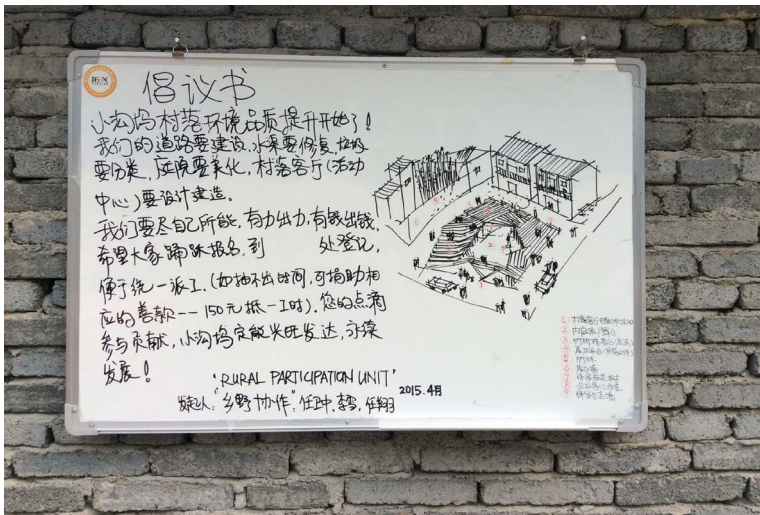 倡议书
小沟坞村落环境品质提升开始了!
我们的道路要建设,水渠要修复,垃圾
要分类,庭院要美化,村落客厅(活动
中心)要设计建造。
我们要尽自己所能,有力出力,有钱出钱,
希望大家踊跃报名,到 处登记,
便于统一派工.(如抽不出时间,可捐助相
应的善款--150元抵一工时).您的点滴
参与贡献,小沟坞定能兴旺发达,永续
发展!
"RURAL PARTICIPATION UNIT"
发起人:"乡野协作"任卫中,李雪,任翔
2015.4月